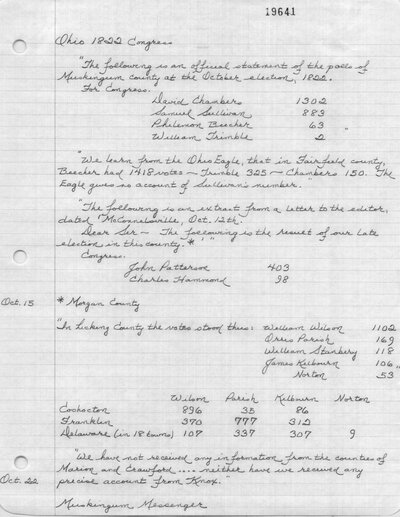 19641
Ohio 1822 Congress
"The following is an official statement of the polls of
Muskingum county at the October election, 1822.
For Congress.
David Chambers 1302
Samuel Sullivan 883
Philemon Beecher 63
William Trimble 2 "
"We learn from the Ohio Eagle, that in Fairfield county,
Beecher had 1418 votes ~ Trimble 325 ~ Chambers 150. The
Eagle gives no account of Sullivan's number."
"The following is an extract from a letter to the editor,
dated "McConnelsville, Oct. 12th.
Dear Sir ~ The following is the result of our late
election in this county.* ' "
Congress.
John Patterson 403
Charles Hammond 98
Oct. 15 * Morgan County
"In Licking County the votes stood thus: William Wilson 1102
Orris Parish 169
William Stanbery 118
James Kilbourn 106
Norton 53 "
Wilson Parish Kilbourn Norton
Coshocton 896 35 86
Franklin 370 777 312
Delaware (in 18 towns) 107 337 307 9
"We have not received any information from the counties of
Marion and Crawford .... neither have we received any
Oct. 22 precise account from Knox."
Muskingum Messenger